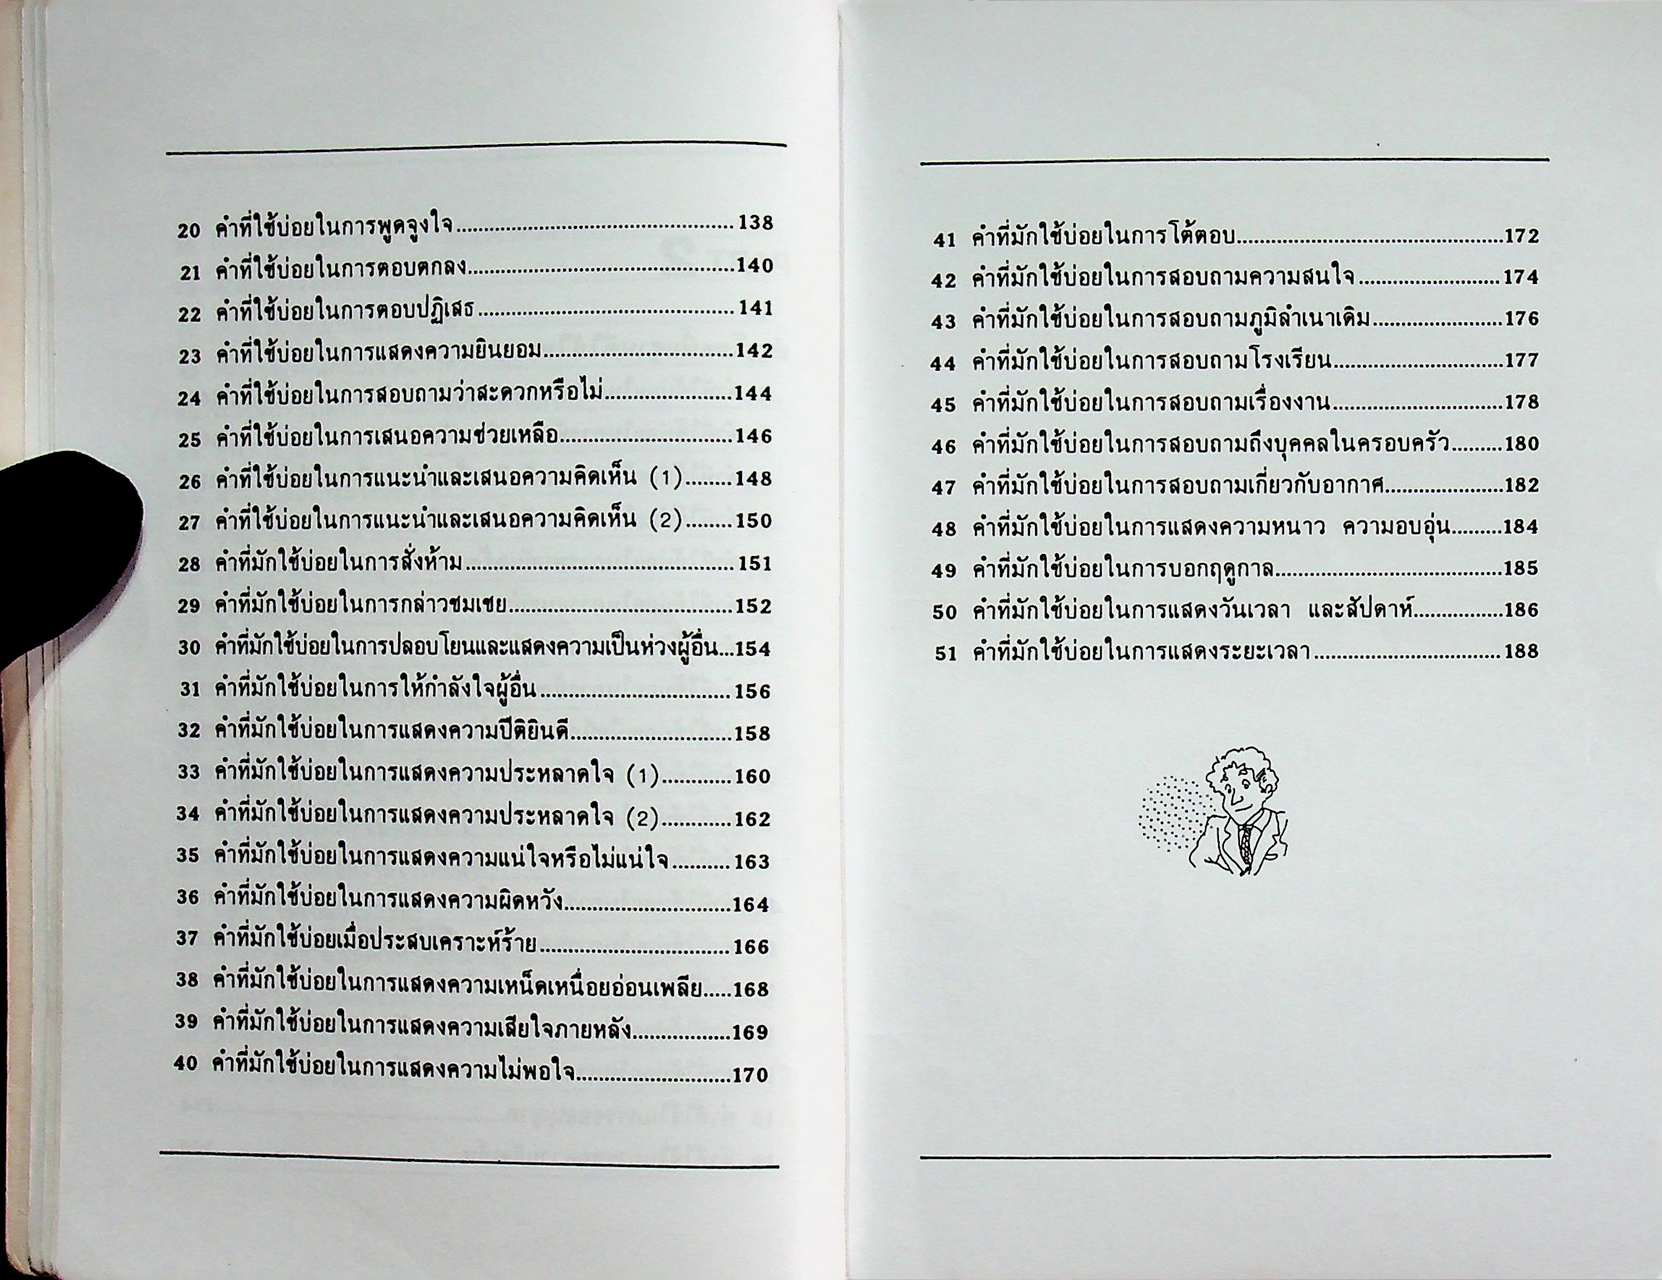 20 คำที่ใช้บ่อยในการพูดจูงใจ................................................138
21 คำที่ใช้บ่อยในการตอบตกลง..............................................140
22 คำที่ใช้บ่อยในการตอบปฏิเสธ............................................141
23 คำที่ใช้บ่อยในการแสดงความยินยอม.................................142
24 คำที่ใช้บ่อยในการสอบถามว่าสะดวกหรือไม่......................144
25 คำที่ใช้บ่อยในการเสนอความช่วยเหลือ..............................146
26 คำที่ใช้บ่อยในการแนะนำและเสนอความคิดเห็น (1)........148
27 คำที่ใช้บ่อยในการแนะนำและเสนอความคิดเห็น (2)........150
28 คำที่มักใช้บ่อยในการสั่งห้าม..............................................151
29 คำที่มักใช้บ่อยในการกล่าวชมเชย.......................................152
30 คำที่มักใช้บ่อยในการปลอบโยนและแสดงความเป็นห่วงผู้อื่น...154
31 คำที่มักใช้บ่อยในการให้กำลังใจผู้อื่น.................................156
32 คำที่มักใช้บ่อยในการแสดงความปีติยินดี............................158
33 คำที่มักใช้บ่อยในการแสดงความประหลาดใจ (1)............160
34 คำที่มักใช้บ่อยในการแสดงความประหลาดใจ (2)............162
35 คำที่มักใช้บ่อยในการแสดงความแน่ใจหรือไม่แน่ใจ..........163
36 คำที่มักใช้บ่อยในการแสดงความผิดหวัง.............................164
37 คำที่มักใช้บ่อยเมื่อประสบเคราะห์ร้าย.................................166
38 คำที่มักใช้บ่อยในการแสดงความเหน็ดเหนื่อยอ่อนเพลีย.....168
39 คำที่มักใช้บ่อยในการแสดงความเสียใจภายหลัง.................169
40 คำที่มักใช้บ่อยในการแสดงความไม่พอใจ...........................170
41 คำที่มักใช้บ่อยในการโต้ตอบ..............................................172
42 คำที่มักใช้บ่อยในการสอบถามความสนใจ.........................174
43 คำที่มักใช้บ่อยในการสอบถามภูมิลำเนาเดิม.......................176
44 คำที่มักใช้บ่อยในการสอบถามโรงเรียน.............................177
45 คำที่มักใช้บ่อยในการสอบถามเรื่องงาน.............................178
46 คำที่มักใช้บ่อยในการสอบถามถึงบุคคลในครอบครัว.........180
47 คำที่มักใช้บ่อยในการสอบถามเกี่ยวกับอากาศ....................182
48 คำที่มักใช้บ่อยในการแสดงความหนาว ความอบอุ่น.........184
49 คำที่มักใช้บ่อยในการบอกฤดูกาล.......................................185
50 คำที่มักใช้บ่อยในการแสดงวันเวลา และสัปดาห์...............186
51 คำที่มักใช้บ่อยในการแสดงระยะเวลา................................188